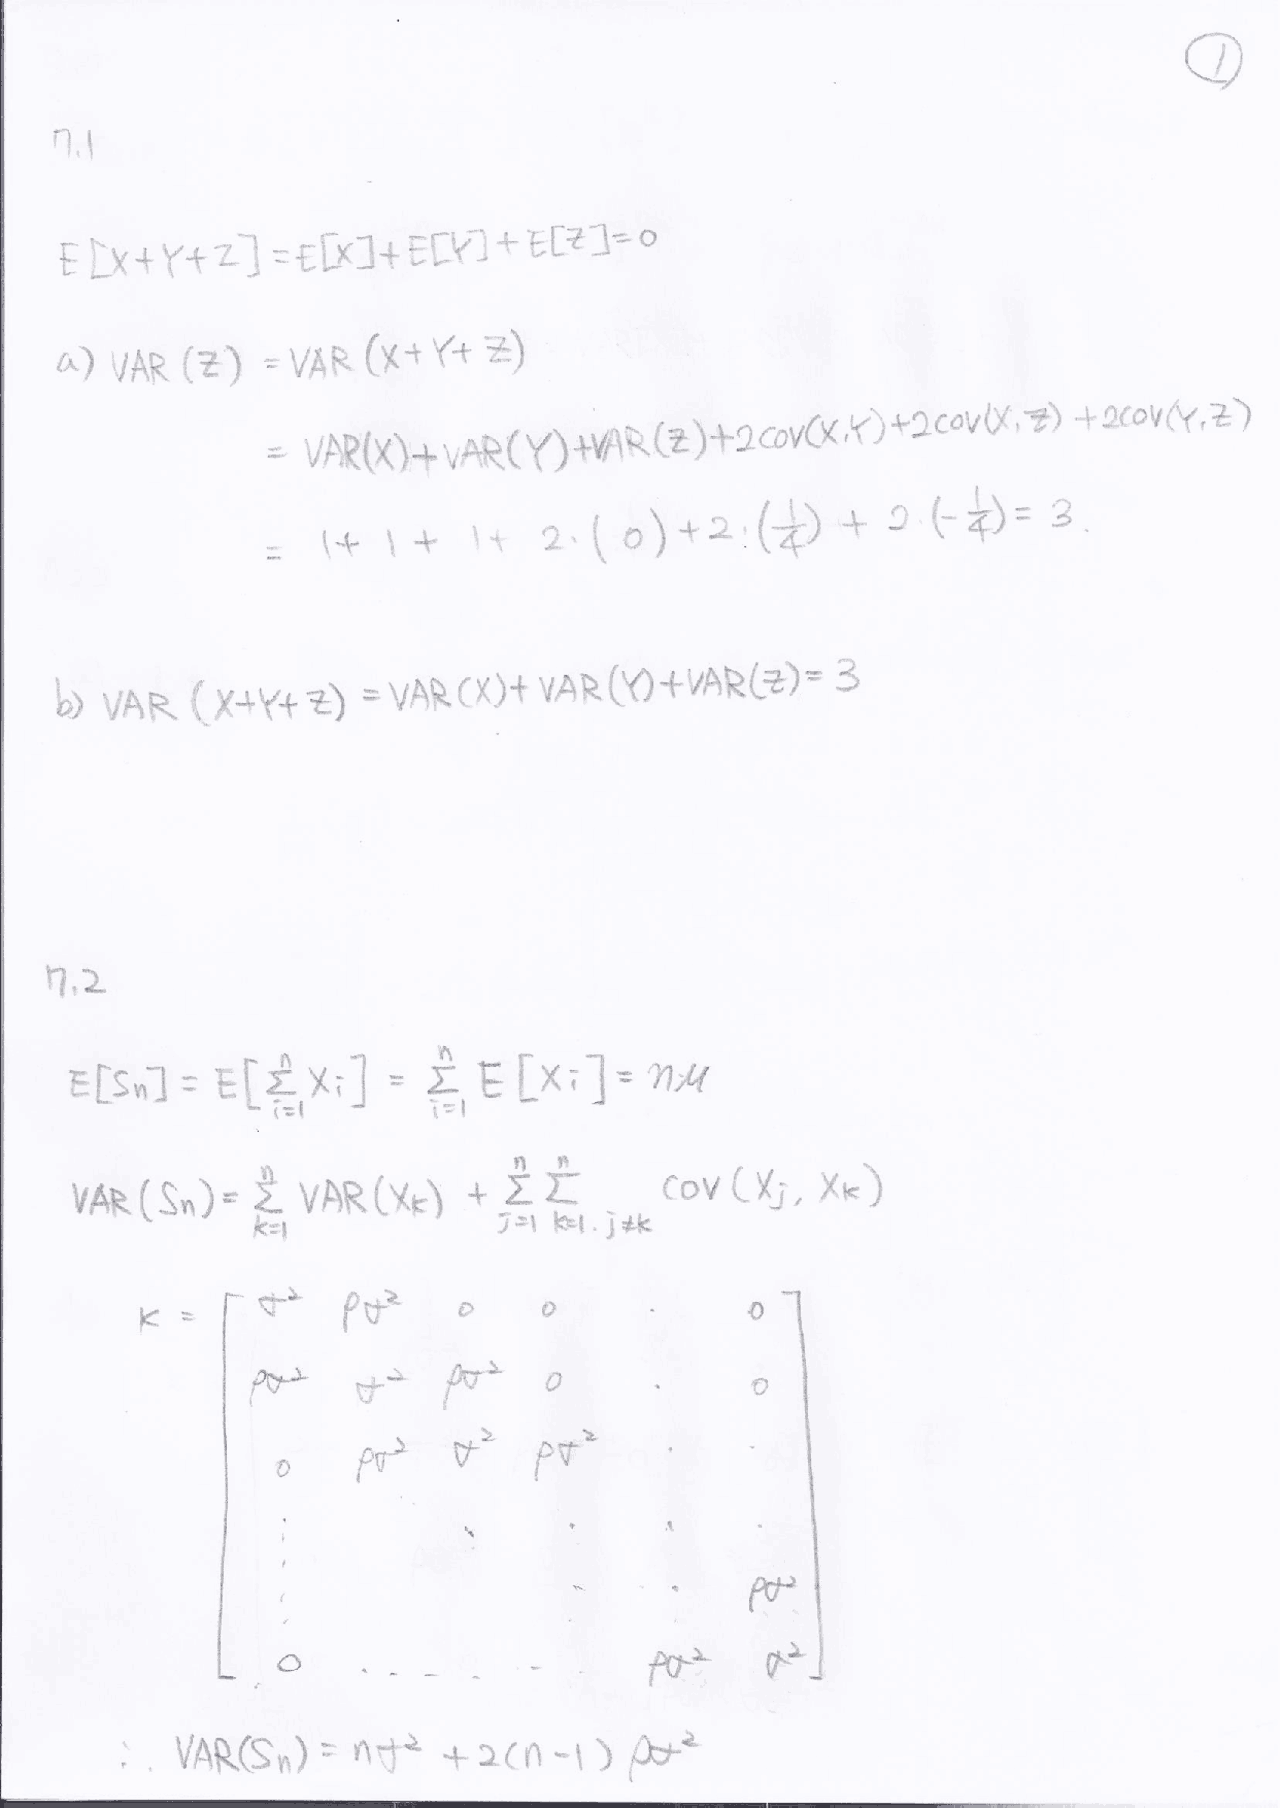 ①
7.1
E[X+Y+Z]=E[X]+E[Y]+E[Z]=0
a) VAR(Z) = VAR(X+Y+Z)
= VAR(X)+VAR(Y)+VAR(Z)+2COV(X,Y)+2COV(X,Z)+2COV(Y,Z)
= 1+1+1+2·(0)+2·(1/4)+2·(-1/4)=3.
b) VAR(X+Y+Z)=VAR(X)+VAR(Y)+VAR(Z)=3
7.2
E[Sn]=E[∑_{i=1}^{n} Xi]=∑_{i=1}^{n} E[Xi]=n·μ
VAR(Sn)=∑_{k=1}^{n} VAR(Xk)+∑_{j=1}^{n} ∑_{k=1, j≠k}^{n} COV(Xj, Xk)
K = [ σ² ρσ² 0 0 · 0
ρσ² σ² ρσ² 0 · 0
0 ρσ² σ² ρσ² · ·
· · · · ·
· · · ρσ²
0 ...... ρσ² σ² ]
∴ VAR(Sn)=nσ²+2(n-1)ρσ²